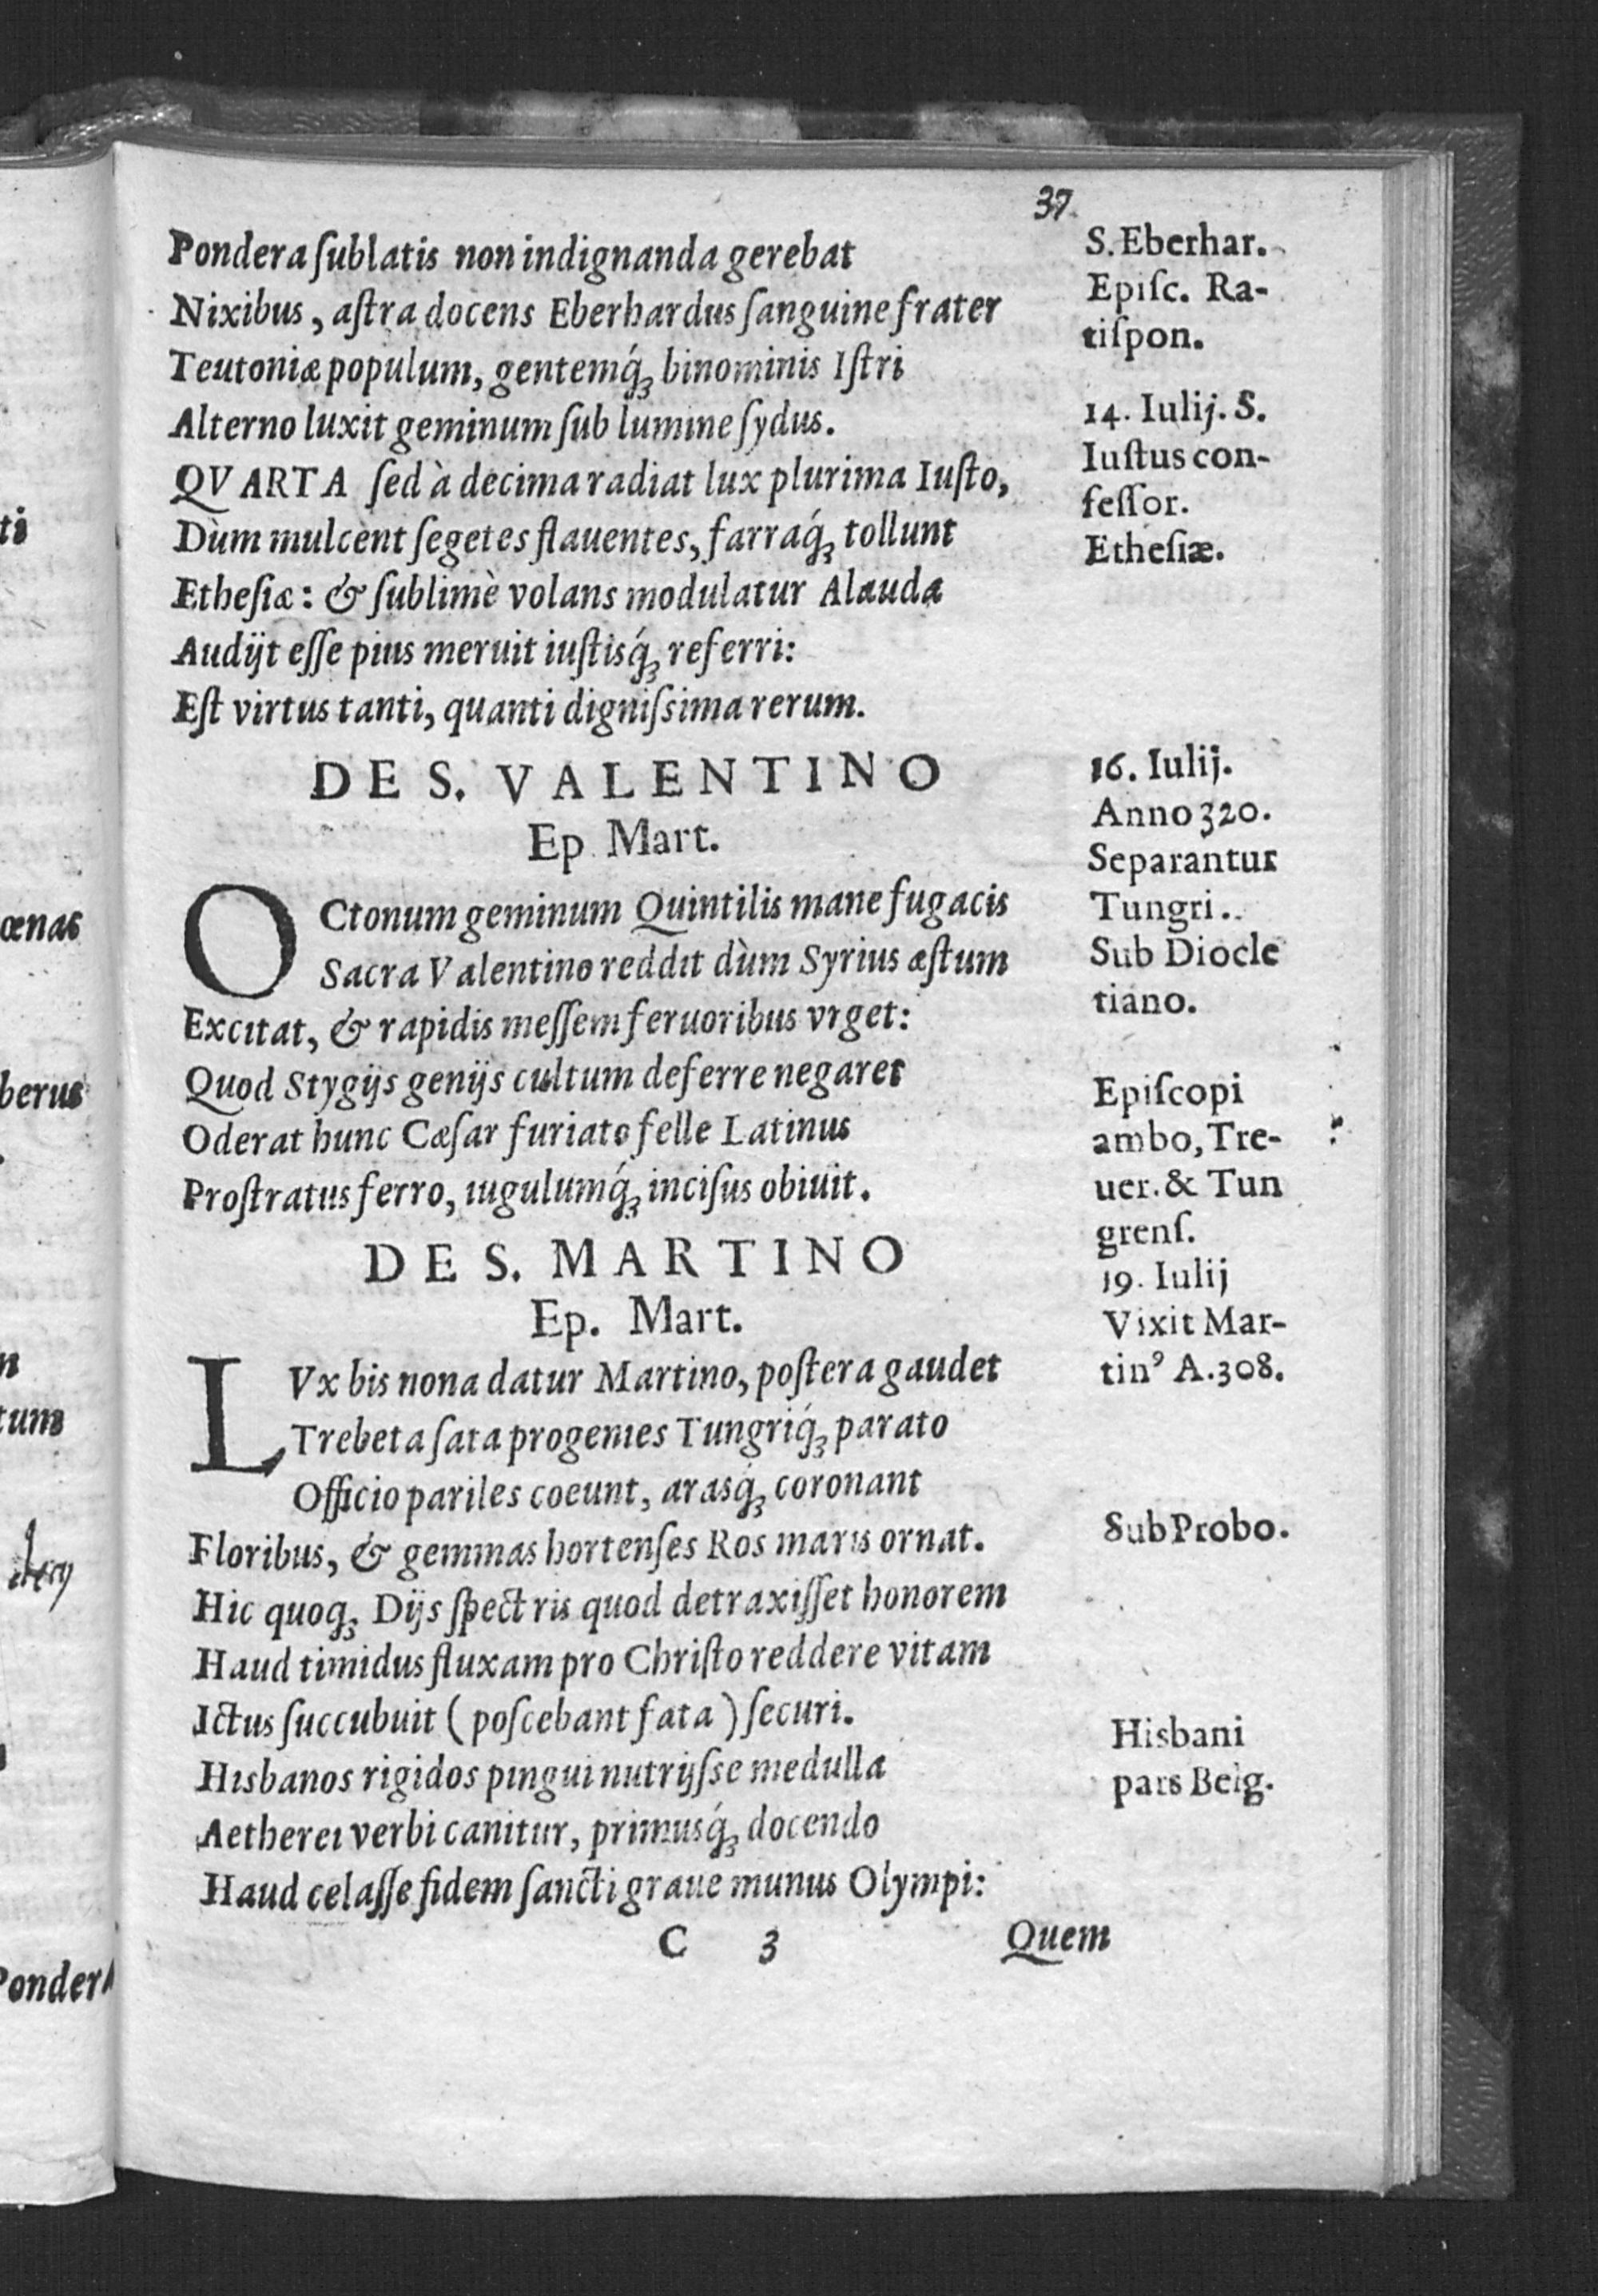 37
Pondera ſublatis non indignanda gerebat
Nixibus, aſtra docens Eberhardus ſanguine frater
Teutoniæ populum, gentemq́ꝫ binominis Iſtri
Alterno luxit geminum ſub lumine ſydus.
QVARTA ſed à decima radiat lux plurima Iuſto,
Dùm mulcent ſegetes flauentes, farraq́ꝫ tollunt
Etheſiæ: & ſublimè volans modulatur Alauda
Audijt eſſe pius meruit iuſtisq́ꝫ referri:
Eſt virtus tanti, quanti digniſsima rerum.
S. Eberhar.
Epiſc. Ra-
tiſpon.
14. Iulij. S.
Iuſtus con-
feſſor.
Etheſiæ.
DE S. VALENTINO
Ep. Mart.
OCtonum geminum Quintilis mane fugacis
Sacra Valentino reddit dùm Syrius æſtum
Excitat, & rapidis meſſem feruoribus vrget:
Quod Stygijs genijs cultum deferre negaret
Oderat hunc Cæſar furiato felle Latinus
Proſtratus ferro, iugulumq́ꝫ inciſus obiuit.
16. Iulij.
Anno 320.
Separantur
Tungri.
Sub Diocle
tiano.
Epiſcopi
ambo, Tre-
uer. & Tun
grenſ.
DE S. MARTINO
Ep. Mart.
LVx bis nona datur Martino, poſtera gaudet
Trebeta ſata progenies Tungriq́ꝫ parato
Officio pariles coeunt, arasq́ꝫ coronant
Floribus, & gemmas hortenſes Ros maris ornat.
Hic quoqꝫ Dijs ſpectris quod detraxiſſet honorem
Haud timidus fluxam pro Chriſto reddere vitam
Ictus ſuccubuit (poſcebant fata) ſecuri.
Hisbanos rigidos pingui nutrijſse medulla
Aetherei verbi canitur, primusq́ꝫ docendo
Haud celaſſe fidem ſancti graue munus Olympi:
19. Iulij
Vixit Mar-
tinꝰ A. 308.
Sub Probo.
Hisbani
pars Belg.
C 3
Quem
ti
œnas
berus
n
tum
Ponder